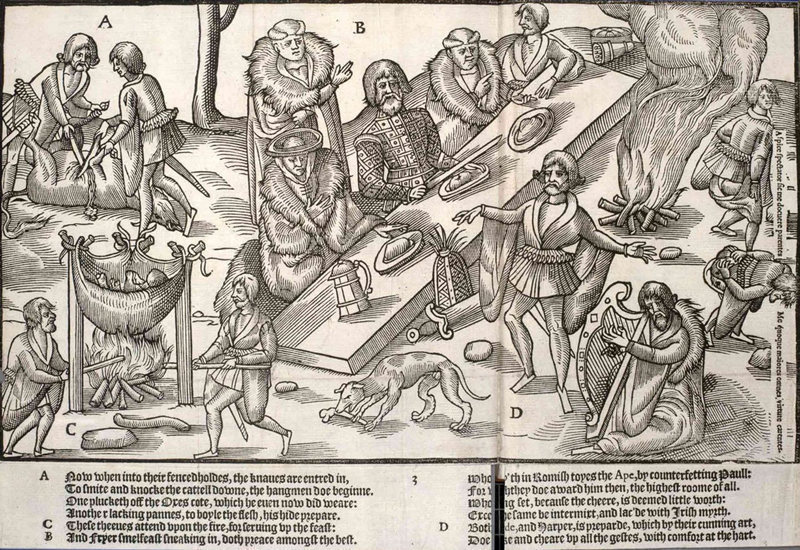 A
B
C
D
A Now when into their fencedholdes, the knaues are entred in,
To smite and knocke the cattell downe, the hangmen doe beginne.
One plucketh off the Oxes cote, which he euen now did weare:
Another lacking pannes, to boyle the flesh, his hide prepare.
C These theeues attend vpon the fire, for seruing vp the feast:
B And Fryer smelfeast sneaking in, doth preace amongst the best.
3 Who in Romish toyes the Ape, by counterfetting Paull:
For they doe award him then, the highest roome of all.
Who set, because the cheere, is deemed little worth:
same be intermixt, and lac'de with Irish myrth.
D Both and Harper, is preparde, which by their cunning art,
Doe and cheare vp all the gestes, with comfort at the hart.
Aspice spectator sic me docuere parentes
Me quoque maiores omnes, virtute carentes.